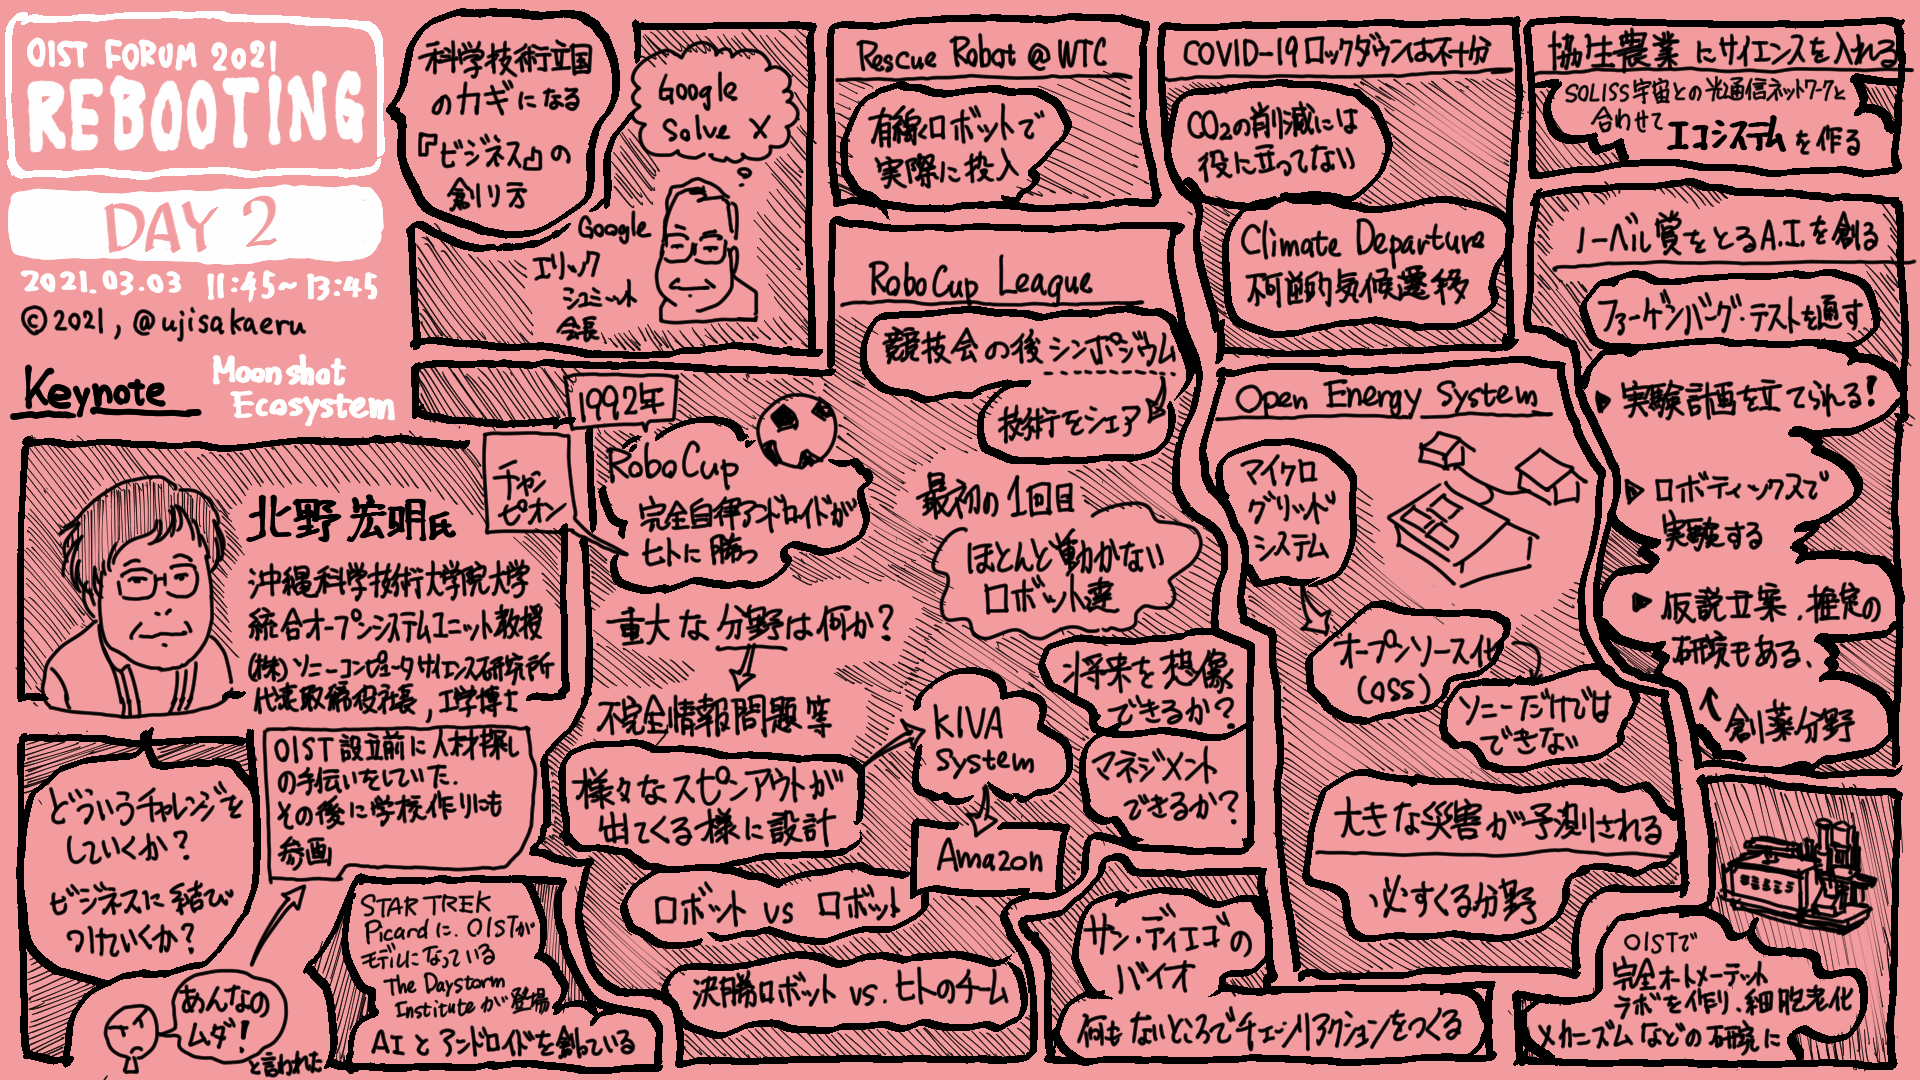 OIST FORUM 2021
REBOOTING
DAY 2
2021.03.03 11:45~13:45
©2021, @ujisakaeru
Keynote
Moonshot
Ecosystem
北野 宏明氏
沖縄科学技術大学院大学
統合オープンシステムユニット教授
(株)ソニーコンピュータサイエンス研究所
代表取締役社長, 工学博士
どういうチャレンジを
していくか?
ビジネスに結び
つけていくか?
OIST設立前に人材探し
の手伝いをしていた.
その後に学校作りにも
参画
あんなの
ムダ!
と言われた
STAR TREK
Picardに、OISTが
モデルになっている
The Daystorm
Instituteが登場
AIとアンドロイドを創っている
科学技術立国
のカギになる
『ビジネス』の
創り方
Google
Solve X
Google
エリック
シュミット
会長
1992年
チャン
ピオン
RoboCup
完全自律アンドロイドが
ヒトに勝つ
重大な分野は何か?
不完全情報問題等
様々なスピンアウトが
出てくる様に設計
KIVA
System
Amazon
ロボット vs ロボット
決勝ロボット vs. ヒトのチーム
Rescue Robot @ WTC
有線ロボットで
実際に投入
RoboCup League
競技会の後シンポジウム
技術をシェア
最初の1回目
ほとんど動かない
ロボット達
将来を想像
できるか?
マネジメント
できるか?
サン・ディエゴの
バイオ
何もないところでチェーンリアクションをつくる
COVID-19ロックダウンは不十分
CO₂の削減には
役に立ってない
Climate Departure
不可逆的気候遷移
Open Energy System
マイクロ
グリッド
システム
オープンソース化
(OSS)
ソニーだけでは
できない
大きな災害が予測される
必ずくる分野
協生農業にサイエンスを入れる
SOLISS宇宙との光通信ネットワークと
合わせて
エコシステムを作る
ノーベル賞をとるA.I.を創る
ファーゲンバーグ・テストを通す
▶実験計画を立てられる!
▶ロボティックスで
実験する
▶仮説立案、推定の
研究もある、
創薬分野
OISTで
完全オートメーテット
ラボを作り、細胞老化
メカニズムなどの研究に